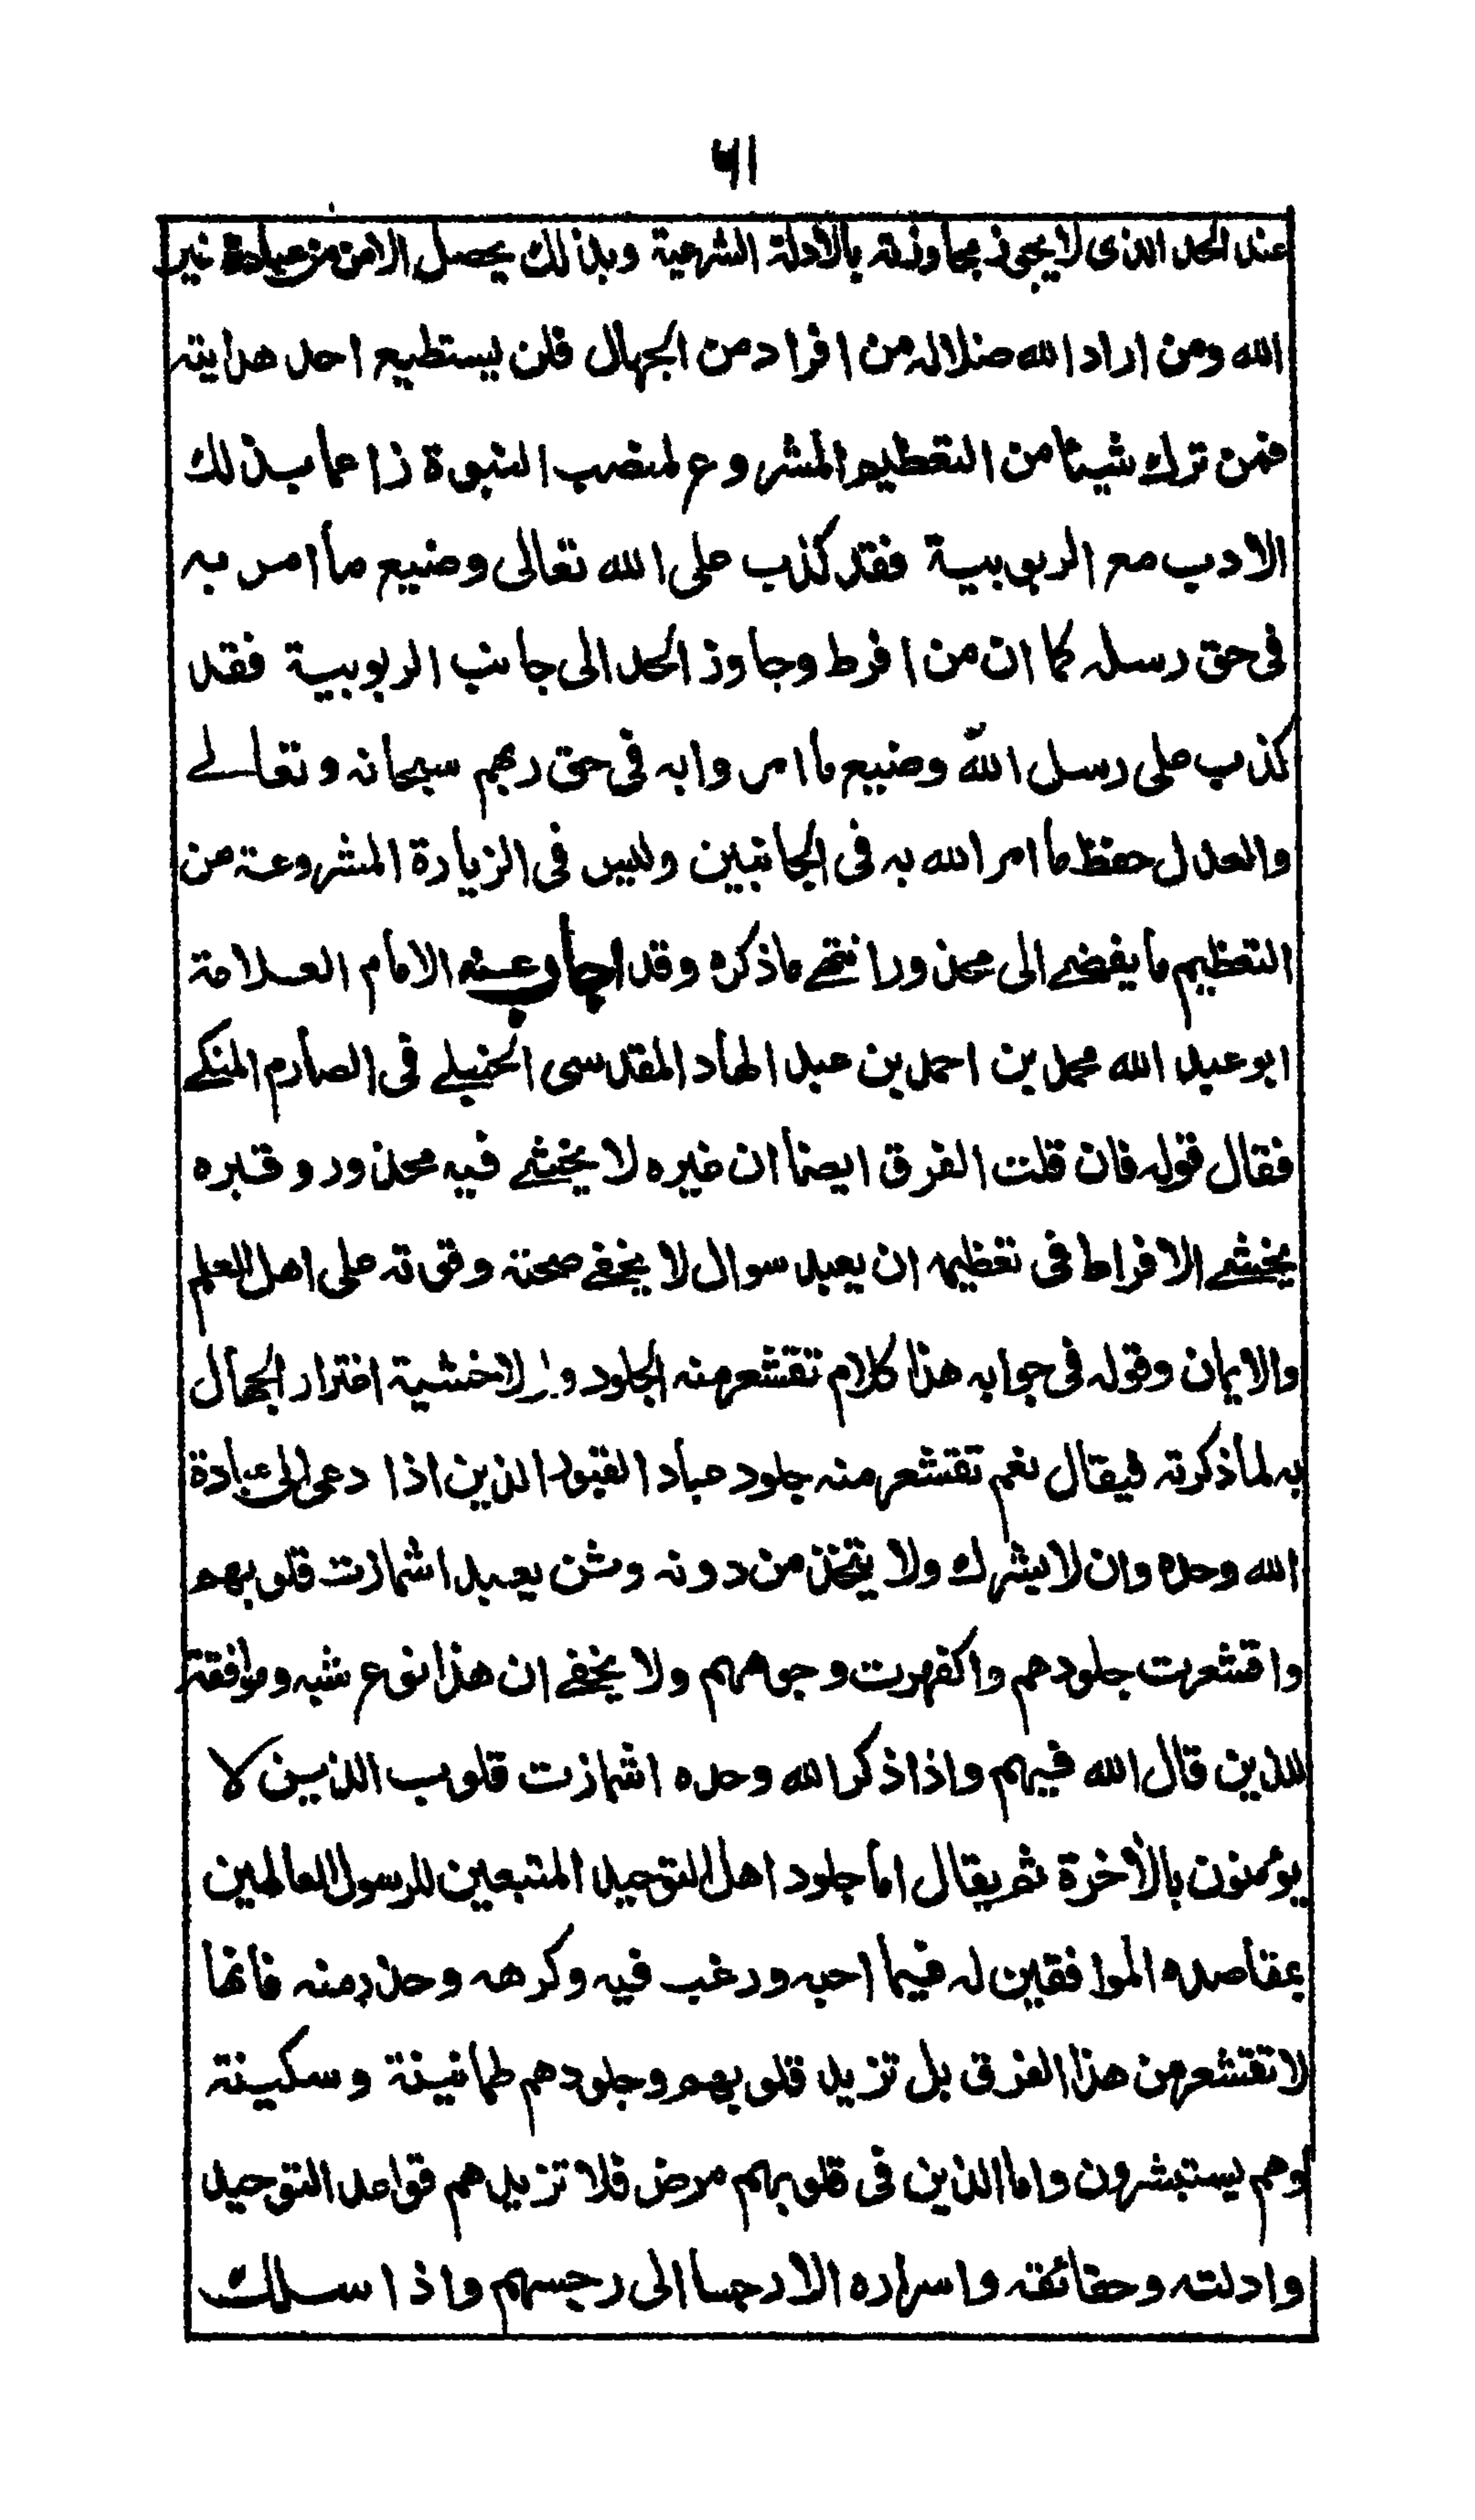 ٦١
عند الحد الذى لا يجوز مجاوزته بالادلة الشرعية وبذلك يحصل الامن من عبادة غير
الله ومن اراد الله ضلاله من افراد من الجهال فلن يستطيع احد هدايته
فمن ترك شيئا من التعظيم المشروع لمنصب النبوة زاعما بذلك
الادب مع الربوبية فقد كذب على الله تعالى وضيع ما امر به
فى حق رسله كما ان من افرط وجاوز الحد الى جانب الربوبية فقد
كذب على رسل الله وضيع ما امروا به فى حق ربهم سبحانه وتعالى
والعدل حفظ ما امر الله به فى الجانبين وليس فى الزيارة المشروعة من
التعظيم ما يفضے الى محذور انتهے ما ذكره وقد اجاب عنه الامام العلامة
ابو عبد الله محمد بن احمد بن عبد الهاد المقدسى الحنبلے فى الصارم المنكے
فقال قوله فان قلت الفرق ايضا ان غيره لا يخشے فيه محذور وقبره
يخشے الافراط فى تعظيمه ان يعبد سوال لا يخفے صحته وقوته على اهل العلم
والايمان وقوله فى جوابه هذا كلام تقشعر منه الجلود ولولا خشية اغترار الجهال
به لما ذكرته فيقال نعم تقشعر منه جلود عباد القبور الذين اذا دعى الى عبادة
الله وحده وان لا يشرك ولا يتخذ من دونه وثن يعبد اشمازت قلوبهم
واقشعرت جلودهم واكفهرت وجوههم ولا يخفے ان هذا نوع شبه وموافقة
للذين قال الله فيهم واذا ذكر الله وحده اشمازت قلوب الذين لا
يؤمنون بالآخرة ثم يقال اما جلود اهل التوحيد المتبعين للرسول العالمين
بمقاصده الموافقين له فيما احبه ورغب فيه وكرهه وحذر منه فانها
لا تقشعر من هذا الفرق بل تزيد قلوبهم وجلودهم طمانينة وسكينة
وهم يستبشرون واما الذين فى قلوبهم مرض فلا تزيدهم قواعد التوحيد
وادلته وحقائقه واسراره الا رجسا الى رجسهم واذا سلك